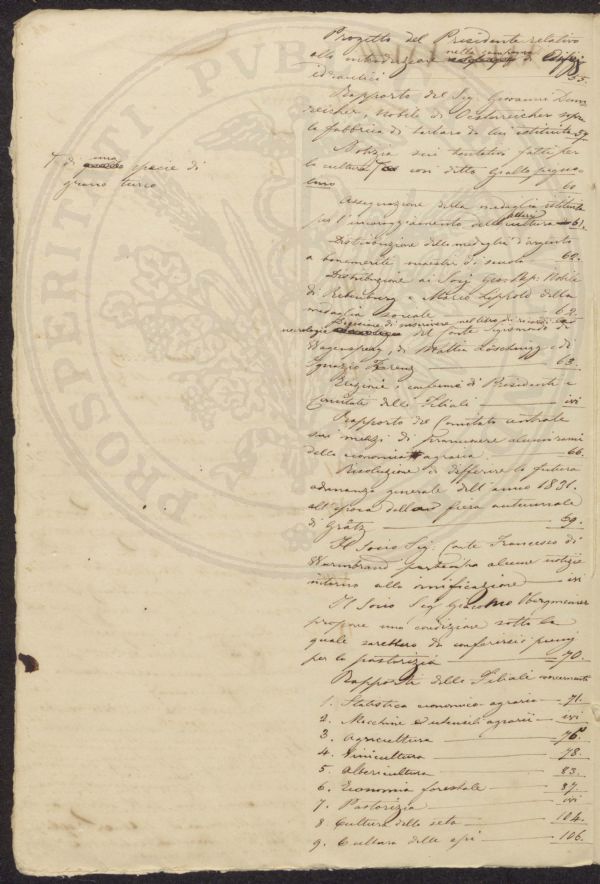 Progetto del Presidente relativo
alla introduzione nella campagna di Edifizj
idraulici 55.
Rapporto del Sig. Giovanni
Nobile di Oesterreicher sopra
la fabbrica di tartaro da lui istituita 59
Notizia sui tentativi fatti per
la cultura così detto Giallo
60
Assegnazione della medaglia istituita
per l'incoraggiamento della cultura 61.
Distribuzione delle medaglie d'argento
a benemeriti maestri di scuola 62.
Distribuzione ai Socj Nobile
di e Marco della
medaglia sociale 62.
Decisione di inserire nel libro di ricordi la
necrologia del Conte Sigismondo di
Wagensperg, di Mattia e di
Ignazio 63.
Elezione e conferma di Presidenti e
Comitati delle Filiali ivi
Rapporto del Comitato centrale
sui mezzi di promuovere alcuni rami
della economia agraria 66.
Risoluzione di differire la futura
adunanza generale dell'anno 1831.
all'epoca della fiera autunnale
di Grätz 69.
Il Socio Sig. Conte Francesco di
Wurmbrand partecipa alcune notizie
intorno alla vinificazione ivi
Il Socio Sig. Giacomo Obergmeiner
propone una condizione sotto la
quale sarebbero da conferirsi premj
per la pastorizia 70.
Rapporti delle Filiali concernenti
1. Statistica economico-agraria 71.
2. Macchine ed utensili agrarii ivi
3. Agricoltura 76
4. Vinicultura 78.
5. Albericultura 83.
6. Economia forestale 87.
7. Pastorizia ivi
8. Cultura della seta 104.
9. Cultura delle api 106.
di una specie di
grano turco
PROSPERITATI PUBL